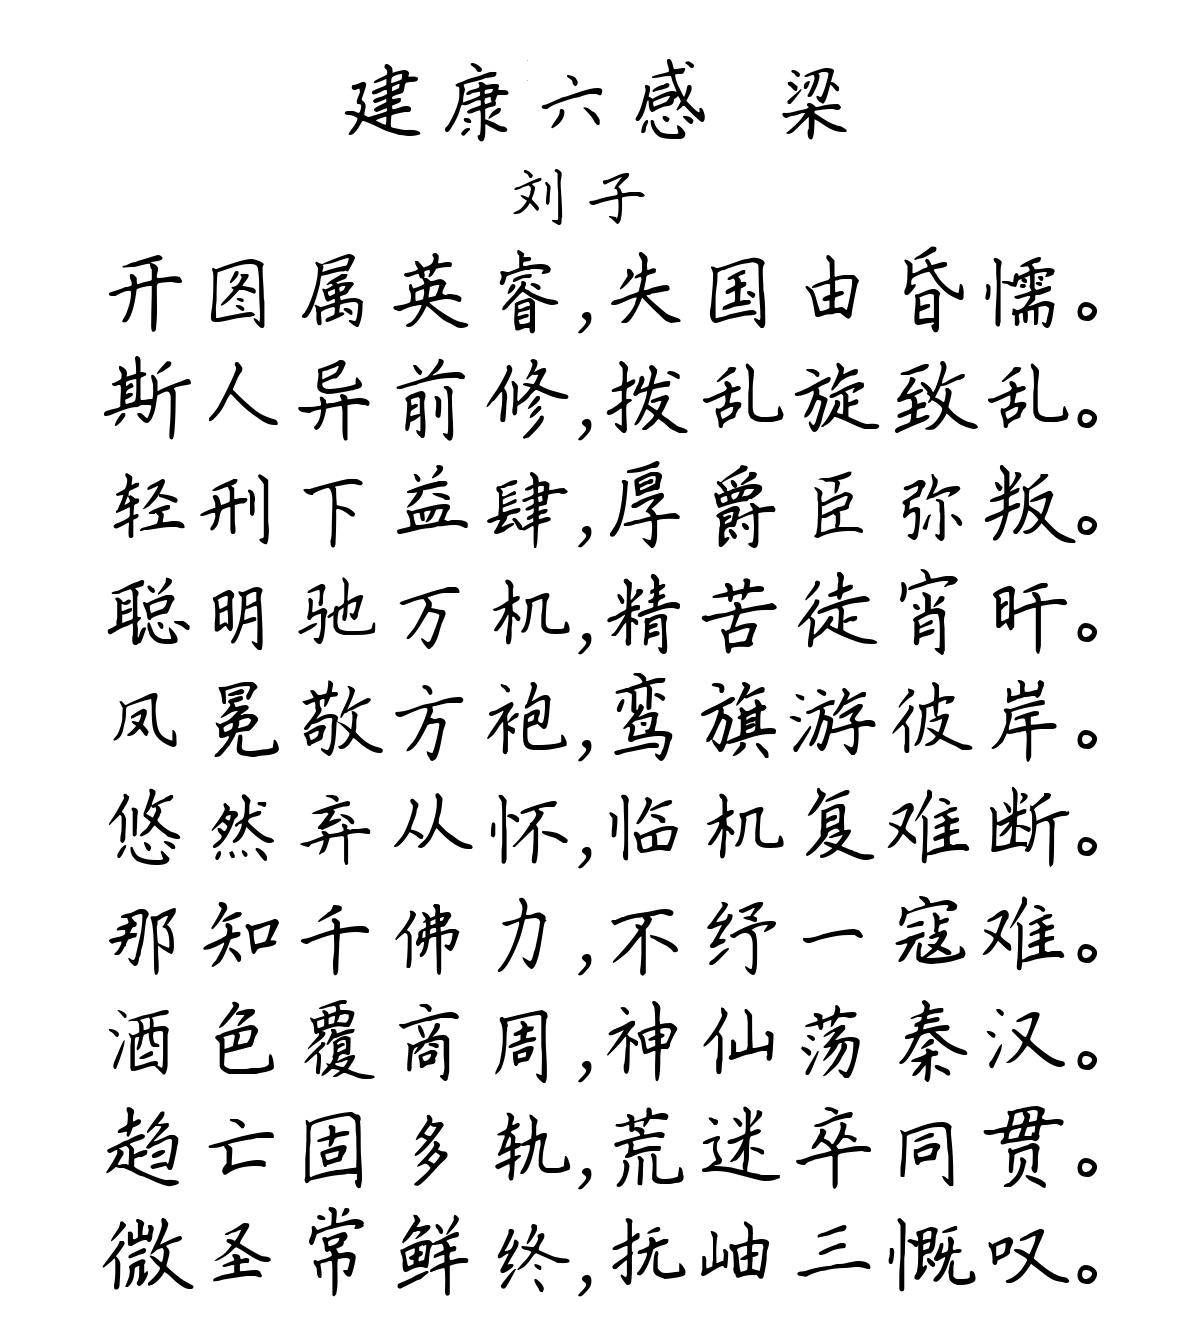 建康六感 梁
刘子
开图属英睿,失国由昏懦。
斯人异前修,拨乱旋致乱。
轻刑下益肆,厚爵臣弥叛。
聪明驰万机,精苦徒宵旰。
凤冕敬方袍,鸾旗游彼岸。
悠然弃从怀,临机复难断。
那知千佛力,不纾一寇难。
酒色覆商周,神仙荡秦汉。
趋亡固多轨,荒迷卒同贯。
微圣常鲜终,抚岫三慨叹。